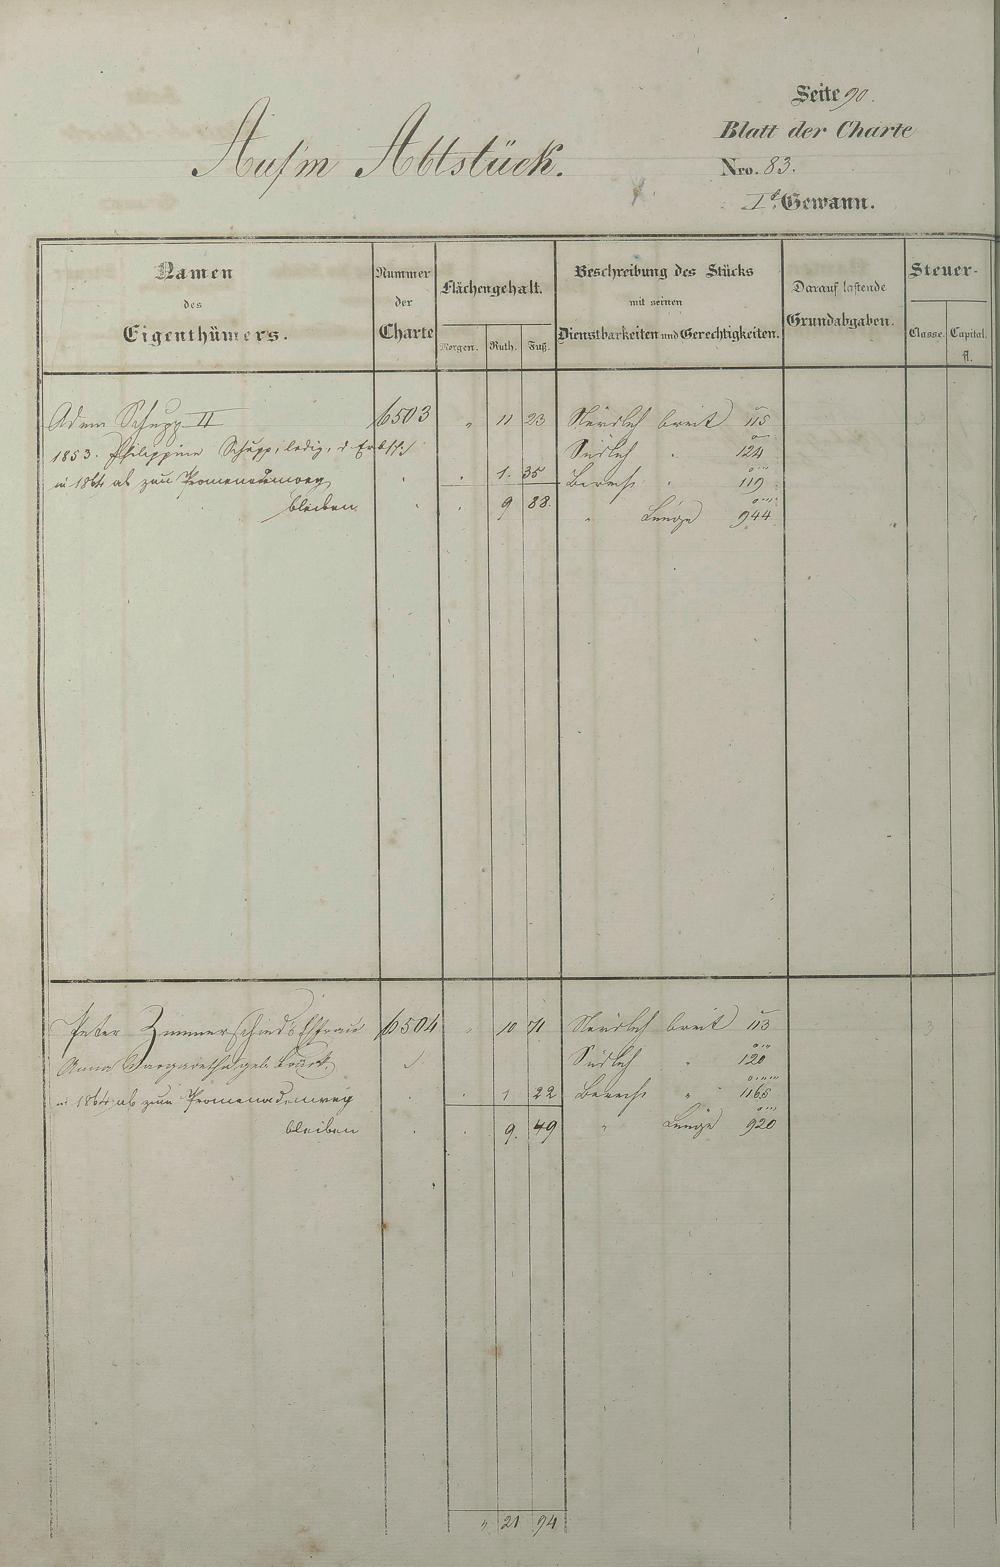 Seite 90.
Blatt der Charte
Auf'm Abtstück.
Nro. 83.
I.te Gewann.
Namen des Eigenthümers.
Nummer der Charte
Flächengehalt.
Morgen. Ruth. Fuß.
Beschreibung des Stücks mit seinen Dienstbarkeiten und Gerechtigkeiten.
Darauf lastende Grundabgaben.
Steuer-
Classe. Capital. fl.
Adam Schupp II 6503 " 11 23 Nördlch breit 115
1853. Philippine Schupp, ledig, d. Erbsch. Südlch " 124
in 1864 ab zum Promenadenweg 1. 35 Berech. " 119
bleiben 9 88 " Länge 944
Peter Zimmerschieds Ehefrau 6504 " 10 71 Nördlch breit 113
Anna Margaretha geb. Südlch " 120
in 1864 ab zum Promenadenweg 1 22 Berech. " 1165
bleiben 9. 49 " Länge 920
" 21 94